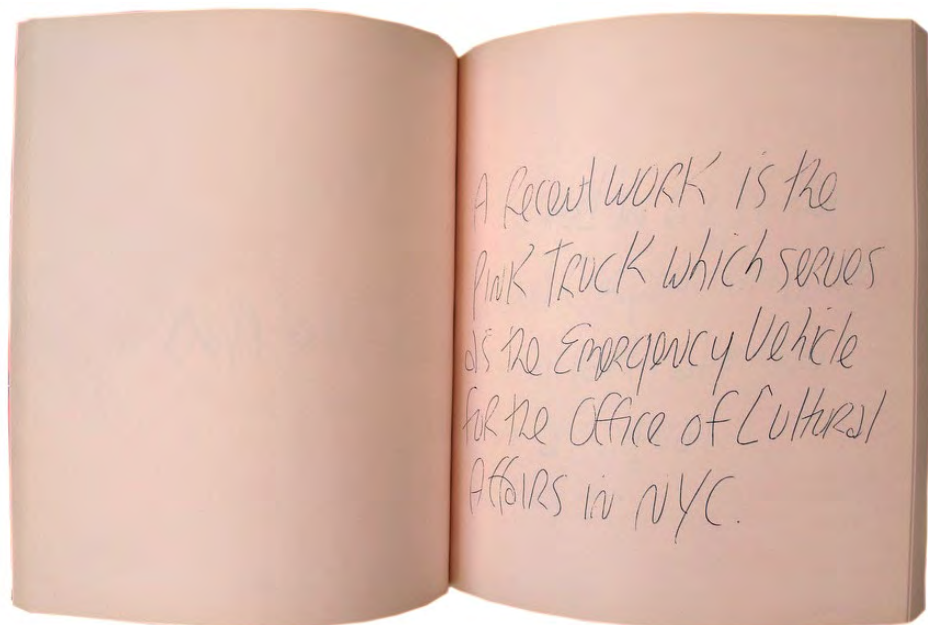 A Recent WORK is the
PINK TRUCK which serves
as the Emergency Vehicle
for the Office of Cultural
Affairs in NYC.